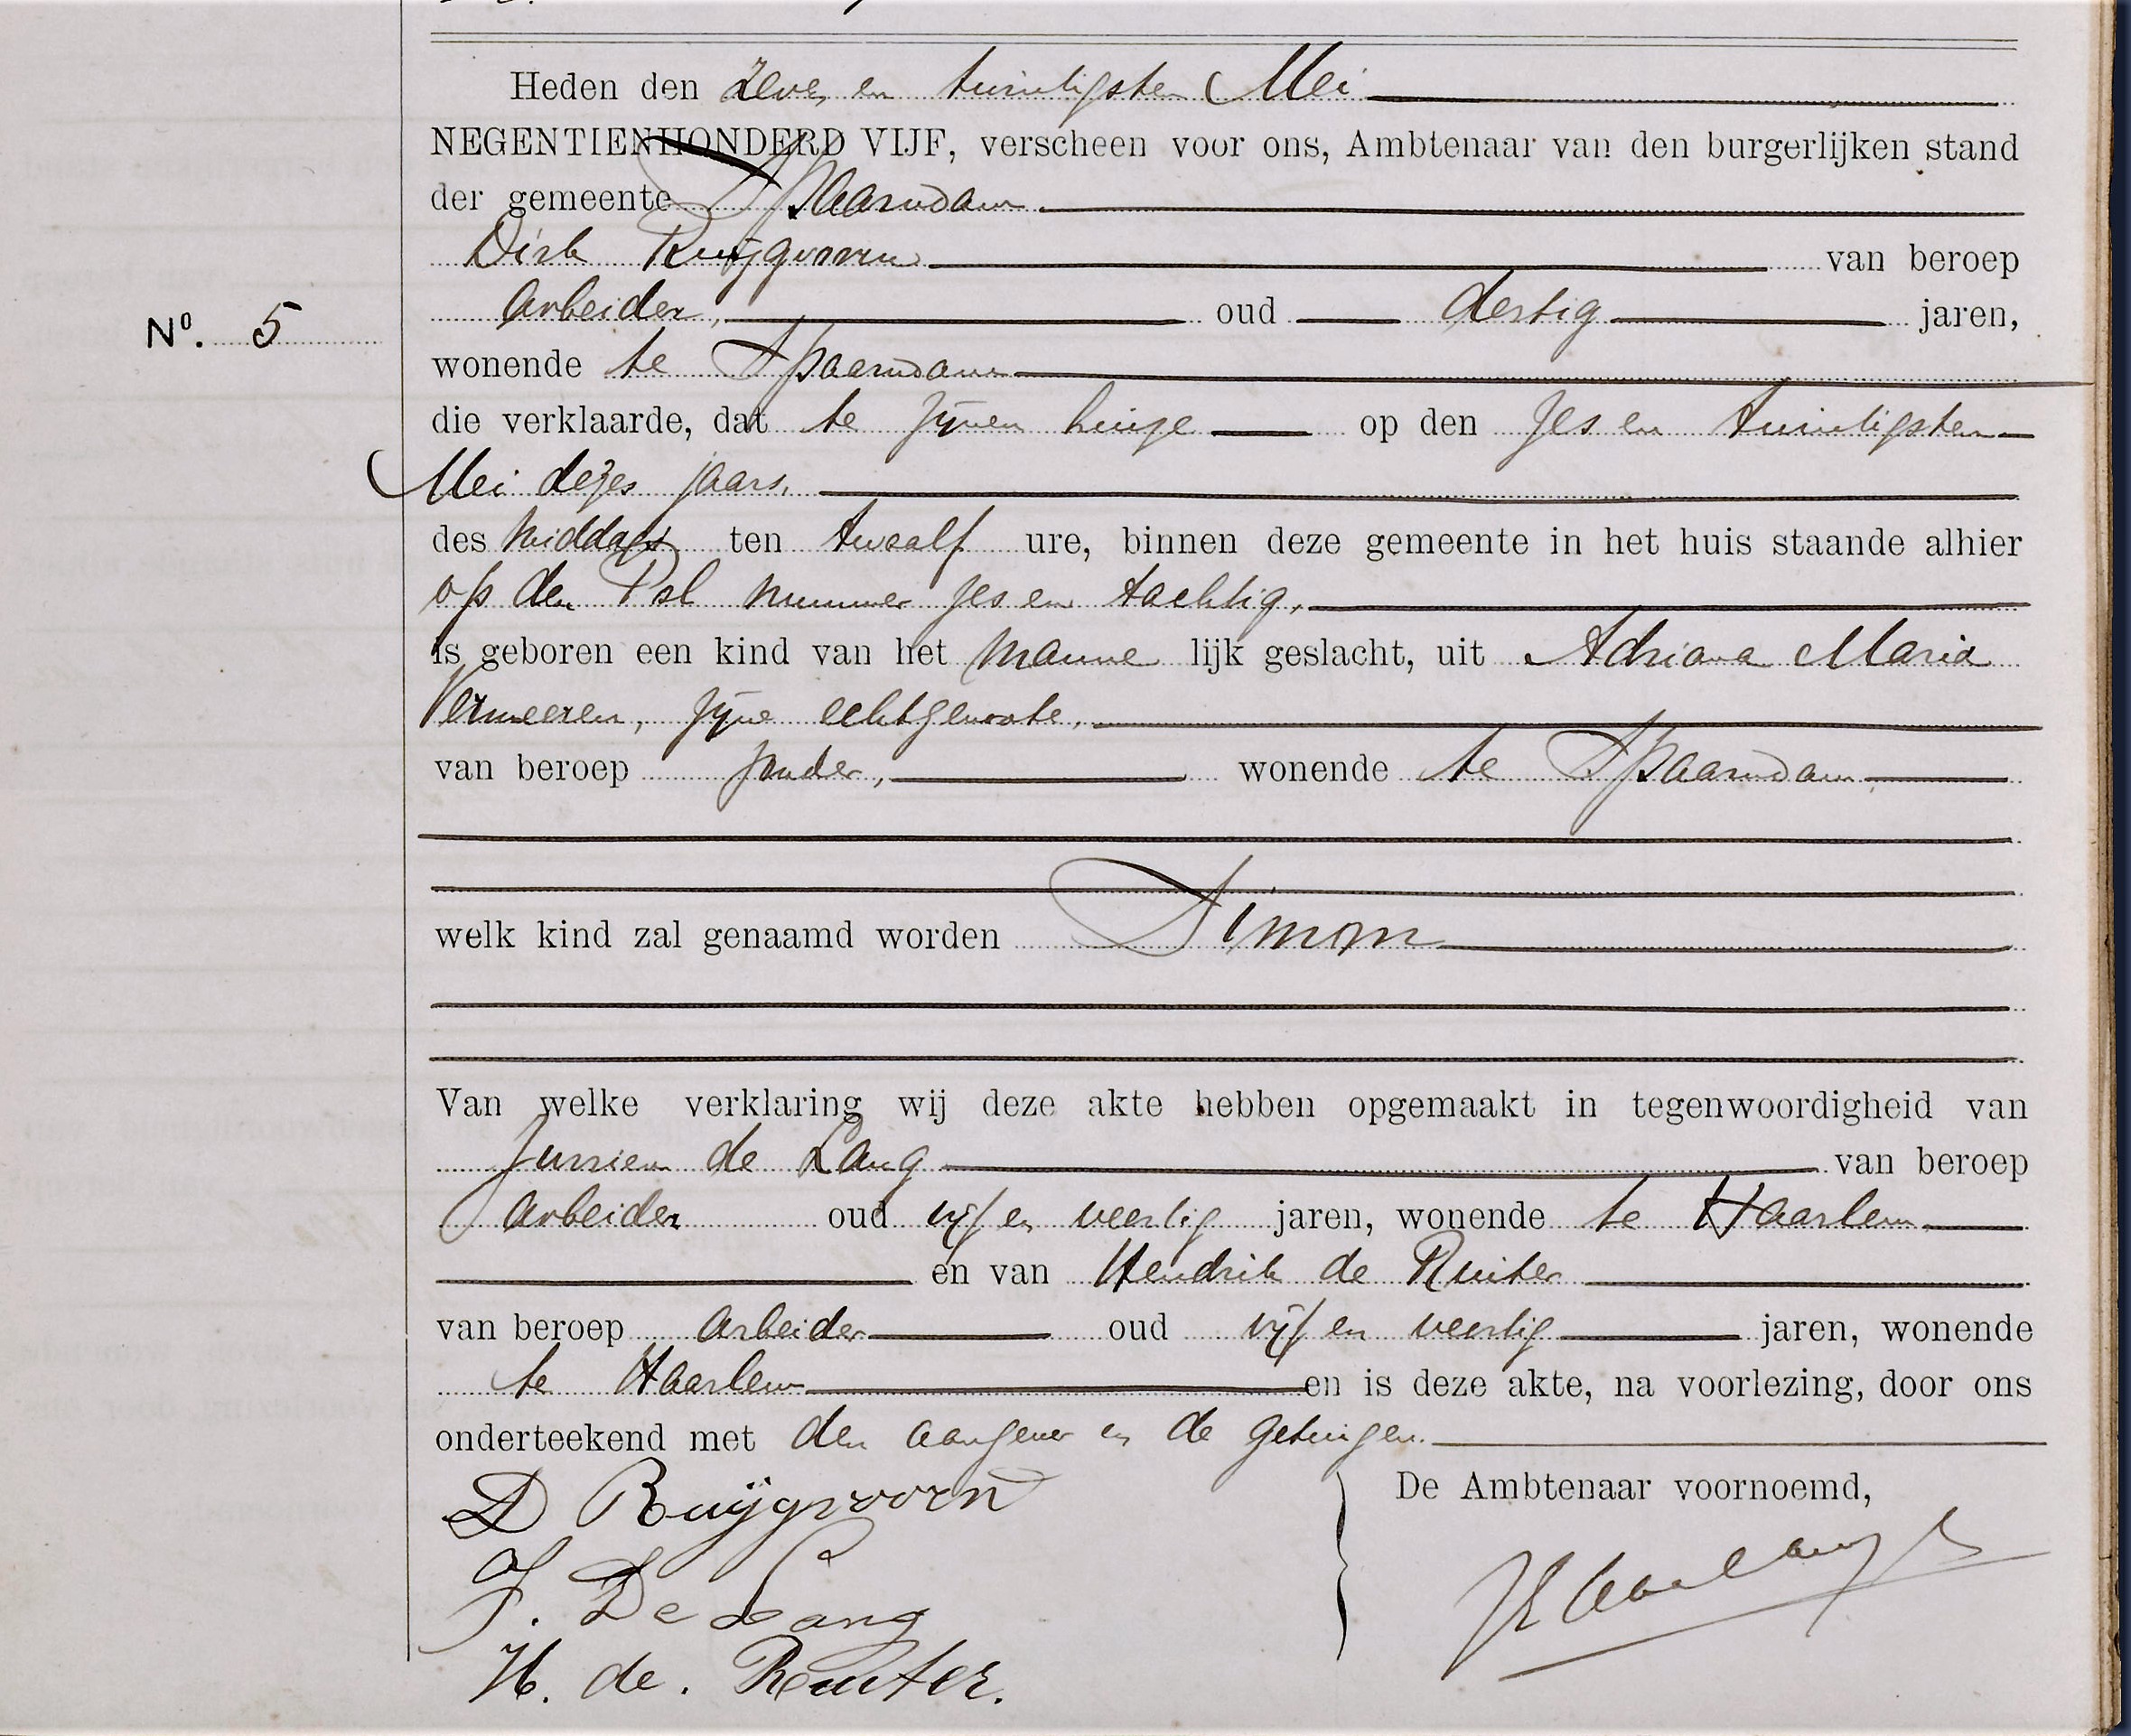 Heden den zeven en twintigsten Mei
NEGENTIENHONDERD VIJF, verscheen voor ons, Ambtenaar van den burgerlijken stand
der gemeente Spaarndam
Dirk Ruijgvoorn van beroep
Nº. 5
arbeider, oud dertig jaren,
wonende te Spaarndam
die verklaarde, dat te zijnen huize op den zes en twintigsten
Mei dezes jaars,
des middags ten twaalf ure, binnen deze gemeente in het huis staande alhier
op den Pol nummer zes en tachtig,
is geboren een kind van het manne lijk geslacht, uit Adriana Maria
Vermeeren, zijne echtgenoote,
van beroep zonder, wonende te Spaarndam
welk kind zal genaamd worden Simon
Van welke verklaring wij deze akte hebben opgemaakt in tegenwoordigheid van
Jurrien de Lang van beroep
arbeider oud vijf en veertig jaren, wonende te Haarlem
en van Hendrik de Ruiter
van beroep arbeider oud vijf en veertig jaren, wonende
te Haarlem en is deze akte, na voorlezing, door ons
onderteekend met den aangever en de getuigen.
De Ambtenaar voornoemd,
D Ruijgvoorn
J. De Lang
H. de. Ruiter.